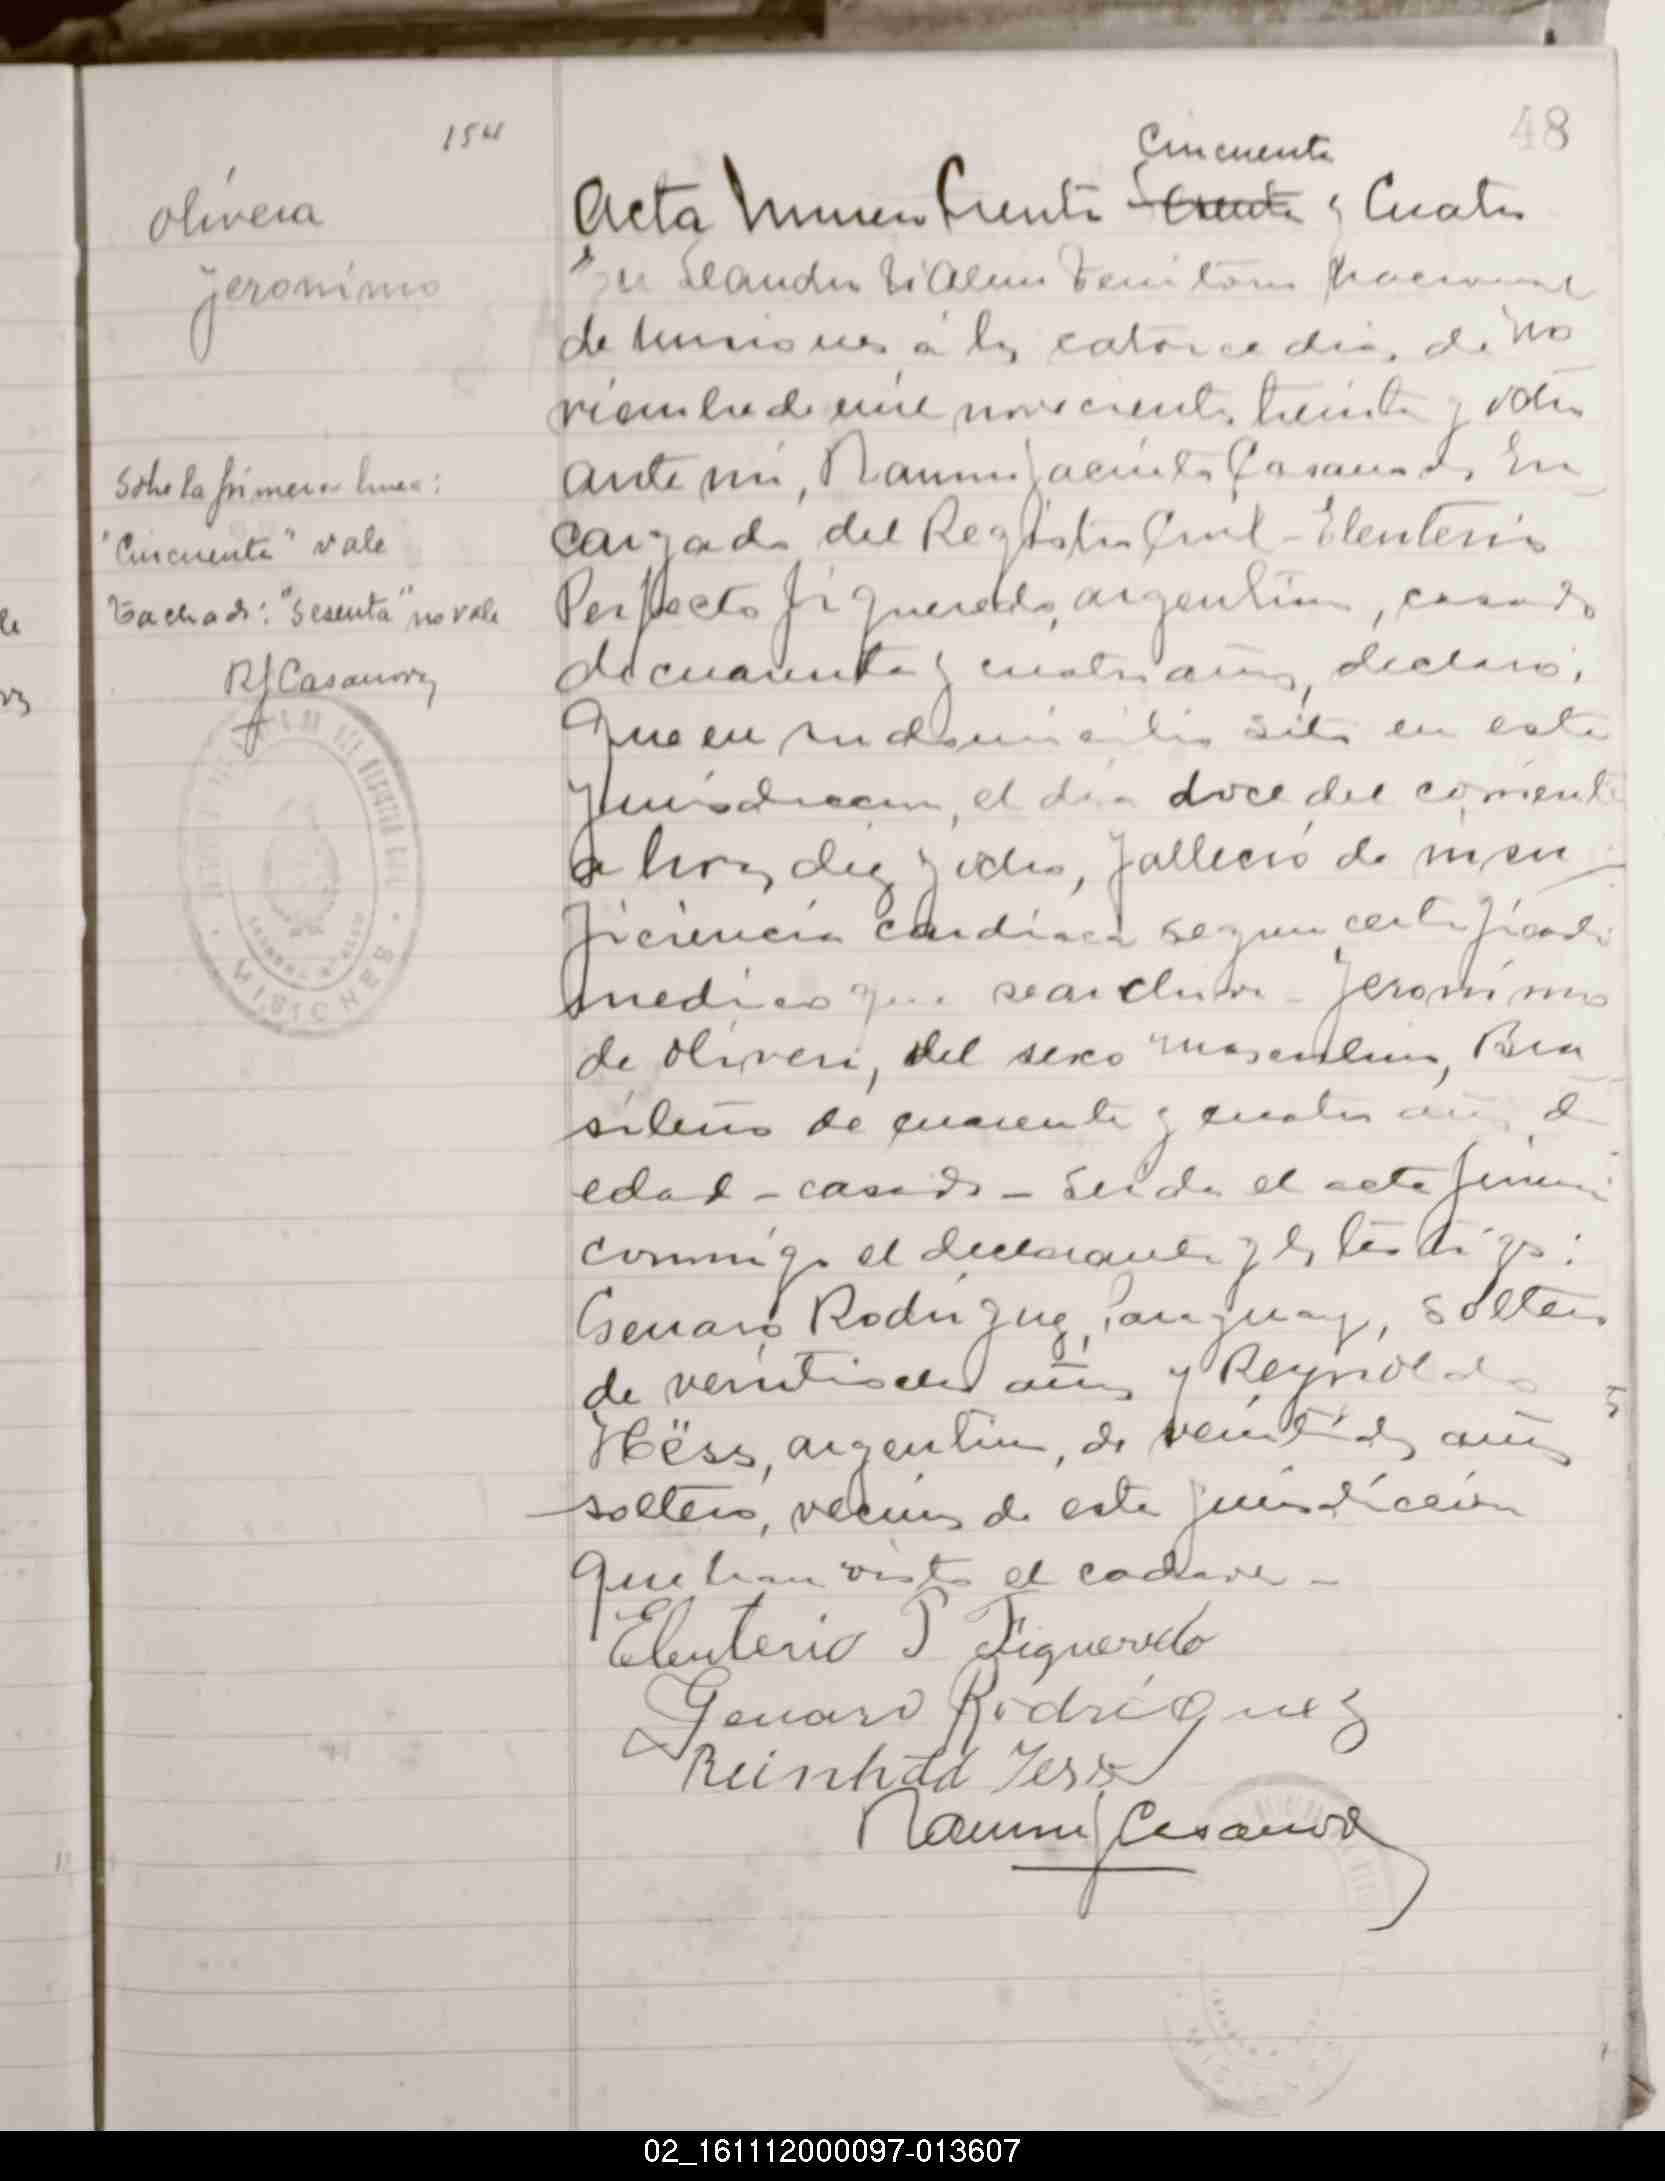 154
48
Olivera
Jeronimo
Cincuenta
Acta Numero Ciento Sesenta y Cuatro
En Leandro N. Alem Territorio Nacional
de Misiones á los catorce dias de No
viembre de mil novecientos treinta y ocho
ante mi, Ramon Jacinto Casanova, En
cargado del Registro Civil - Eleuterio
Perfecto Figueredo, argentino, casado
de cuarenta y cuatro años, declaró:
Que en su domicilio sito en esta
jurisdiccion, el dia doce del corriente
a horas diez y ocho, falleció de insu
ficiencia cardiaca segun certificado
medico que se archiva - Jeronimo
de Olivera, del sexo masculino, Bra
sileño de cuarenta y cuatro años de
edad - casado - Leida el acta firman
conmigo el declarante y los testigos:
Genaro Rodriguez, Paraguayo, soltero
de veintiocho años y Reynoldo
Hëss, argentino, de veintidos años
soltero, vecinos de esta jurisdiccion
que han visto el cadaver -
Sobre la primera linea:
"Cincuenta" vale
Tachado: "Sesenta" no vale
RJCasanova
MISIONES
Eleuterio P Figueredo
Genaro Rodriguez
Reinhold Hess
Ramon J Casanova
02_161112000097-013607